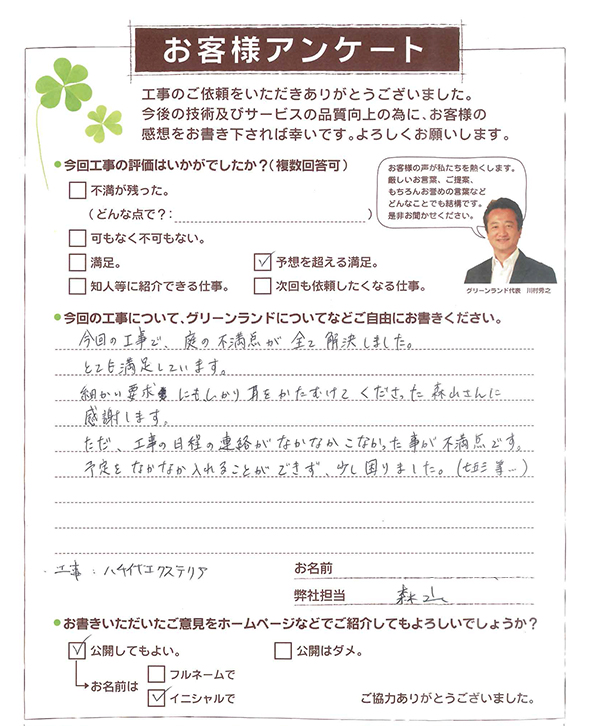 お客様アンケート
工事のご依頼をいただきありがとうございました。
今後の技術及びサービスの品質向上の為に、お客様の
感想をお書き下されば幸いです。よろしくお願いします。
今回工事の評価はいかがでしたか?(複数回答可)
不満が残った。
(どんな点で?: )
可もなく不可もない。
満足。
予想を超える満足。
知人等に紹介できる仕事。
次回も依頼したくなる仕事。
お客様の声が私たちを熱くします。
厳しいお言葉、ご提案、
もちろんお誉めの言葉など
どんなことでも結構です。
是非お聞かせください。
グリーンランド代表 川村秀之
今回の工事について、グリーンランドについてなどご自由にお書きください。
今回の工事で、庭の不満点が全て解決しました。
とても満足しています。
細かい要求にもしっかり耳をかたむけてくださった森山さんに
感謝します。
ただ、工事の日程の連絡がなかなかこなかった事が不満点です。
予定をなかなか入れることができず、少し困りました。(七五三等…)
工事:ハチイエクステリア
お名前
弊社担当 森山
お書きいただいたご意見をホームページなどでご紹介してもよろしいでしょうか?
公開してもよい。
公開はダメ。
お名前は
フルネームで
イニシャルで
ご協力ありがとうございました。